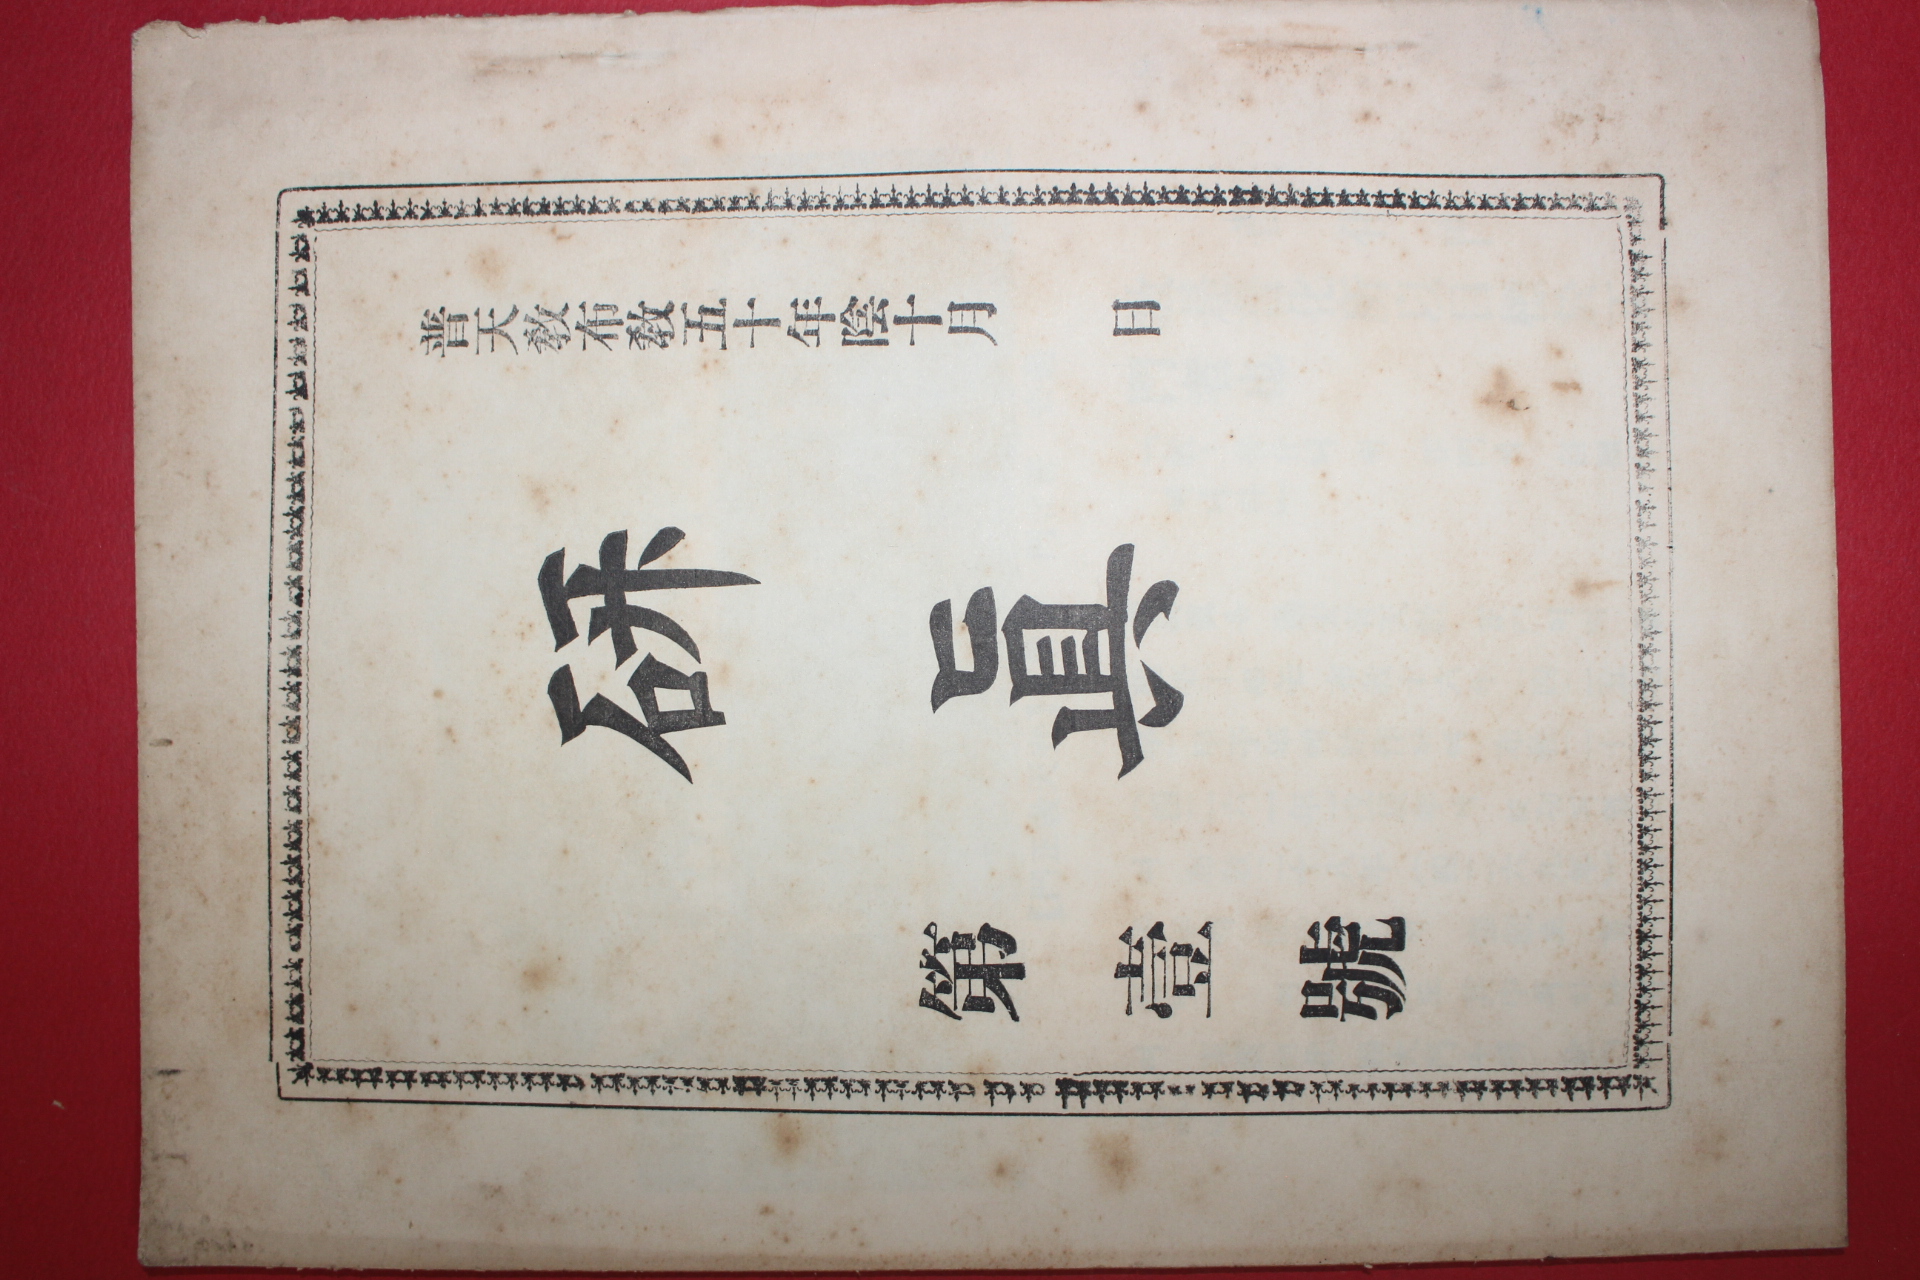 普天敎布敎五十年陰十月　日
研眞
第壹號